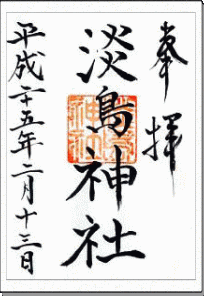 奉拝
淡島神社
平成二十五年二月十三日